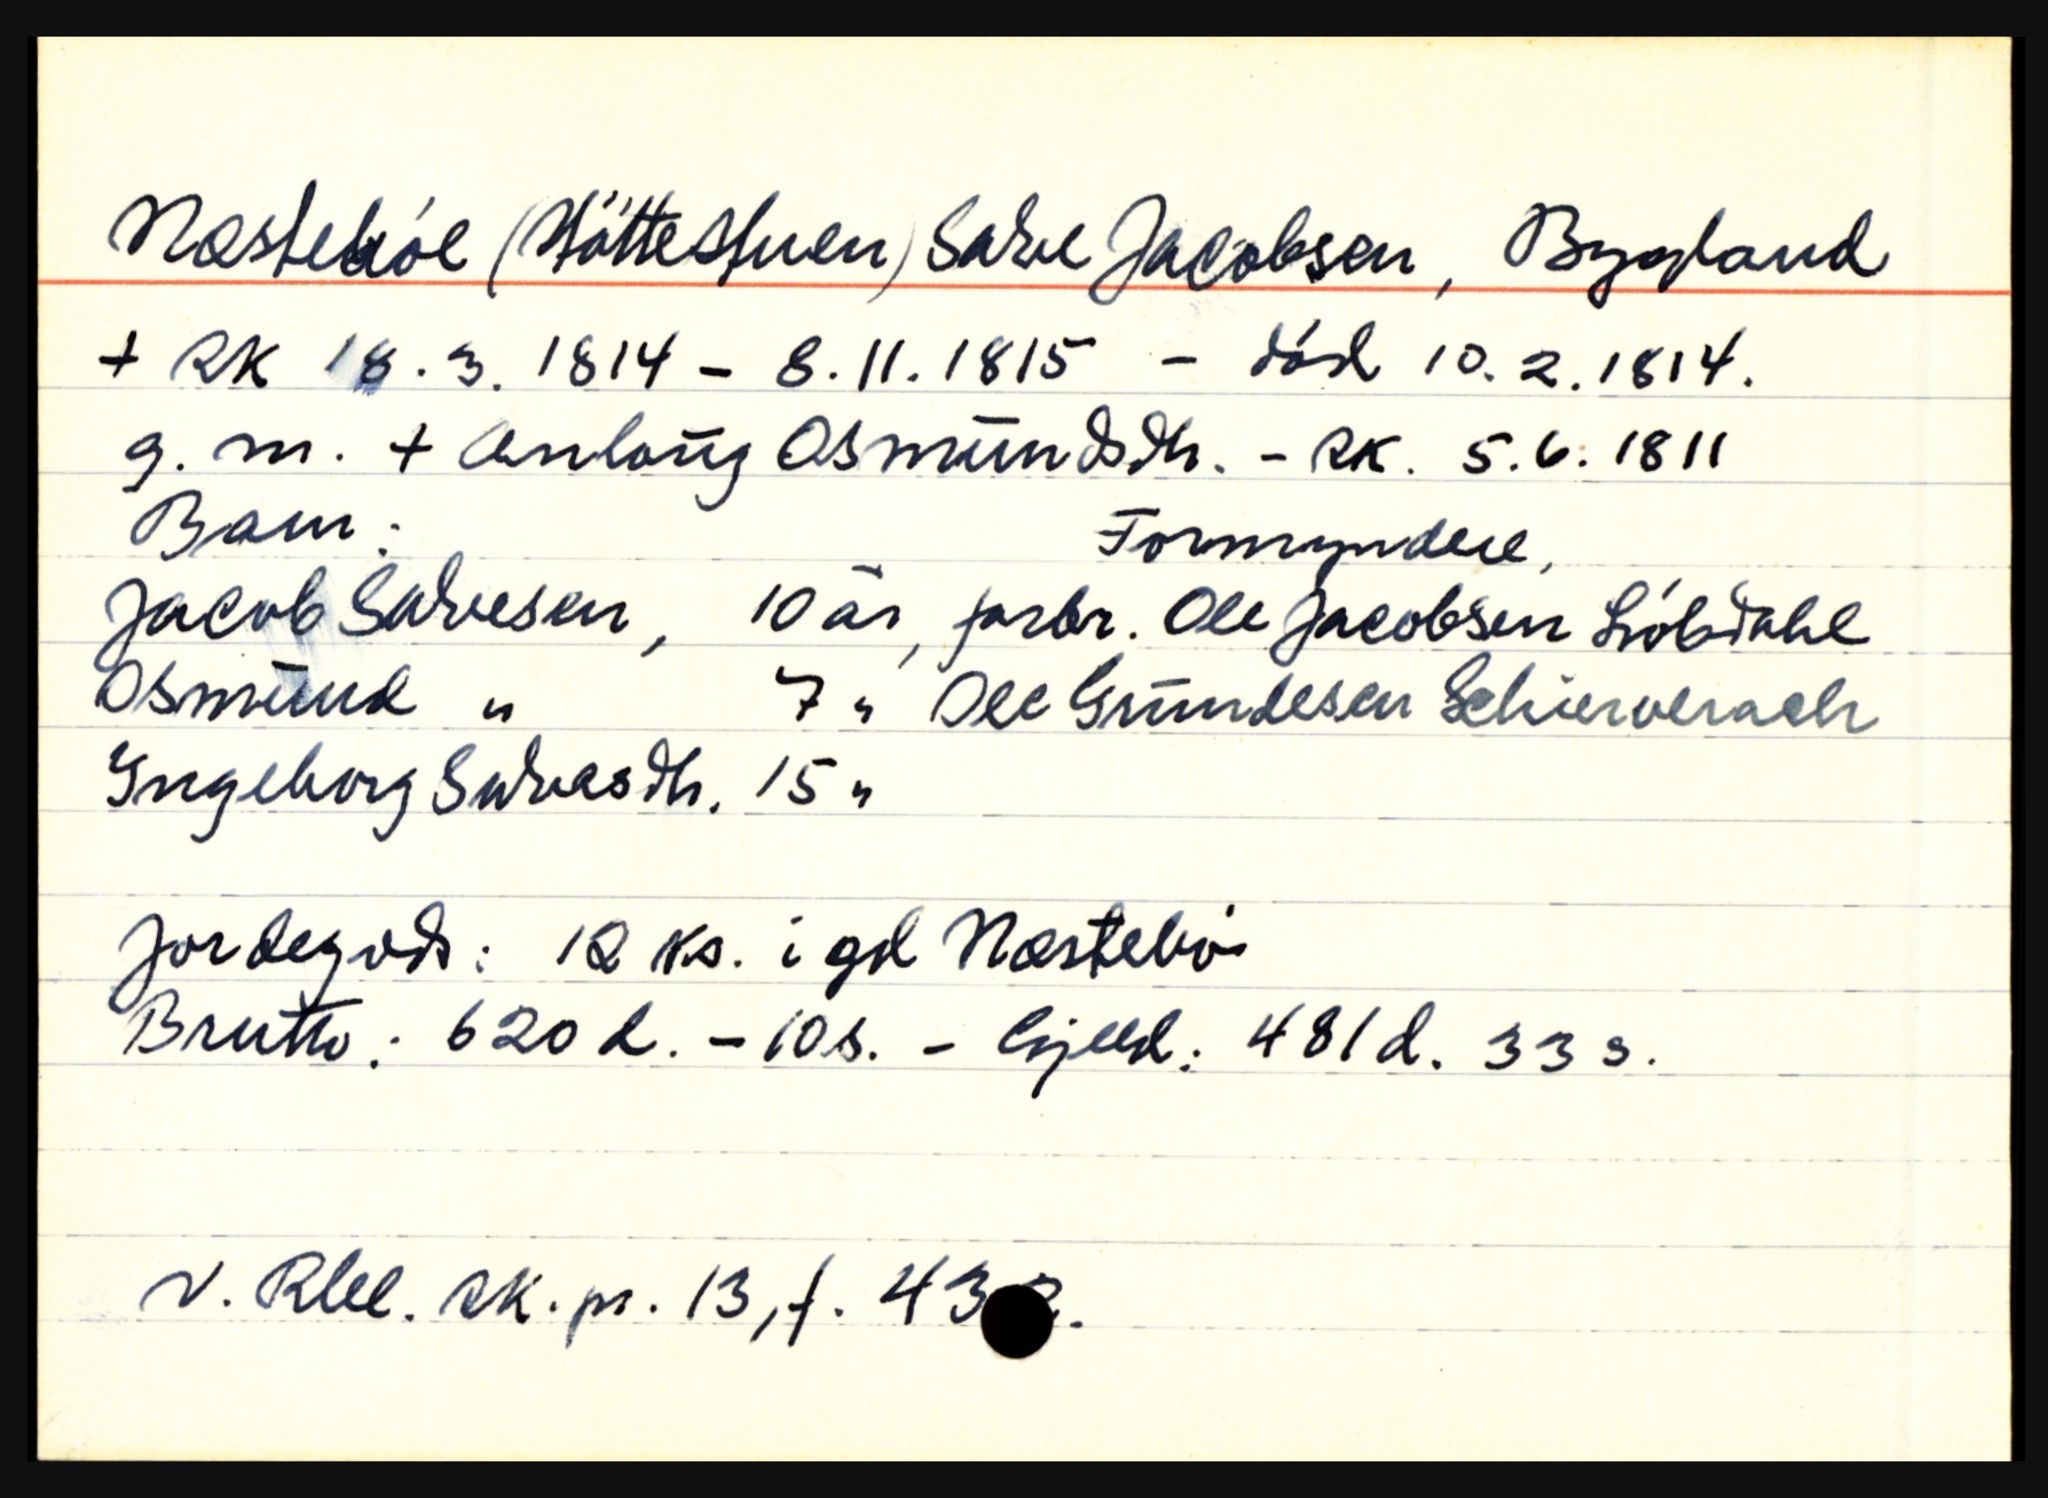 Næstebóe (Støttestuen) Salve Jacobsen, Bygland
+ SK 18.3.1814 – 8.11.1815 – död 10.2.1814.
g. m. + Anlaug Osmundsdtr. – SK. 5.6.1811
Barn: Formyndere,
Jacob Salvesen, 10 år, farbr. Ole Jacobsen Lióbdahl
Osmund " 7 " Ole Gundesen Schierverach
Yngeborg Salvesdtr. 15 "
Jordegods: 12 ks. i gd Næstebö
Brutto: 620 d. – 10 s. – Gjeld: 481 d. 33 s.
V. Rbl. SK. pr. 13, f. 43